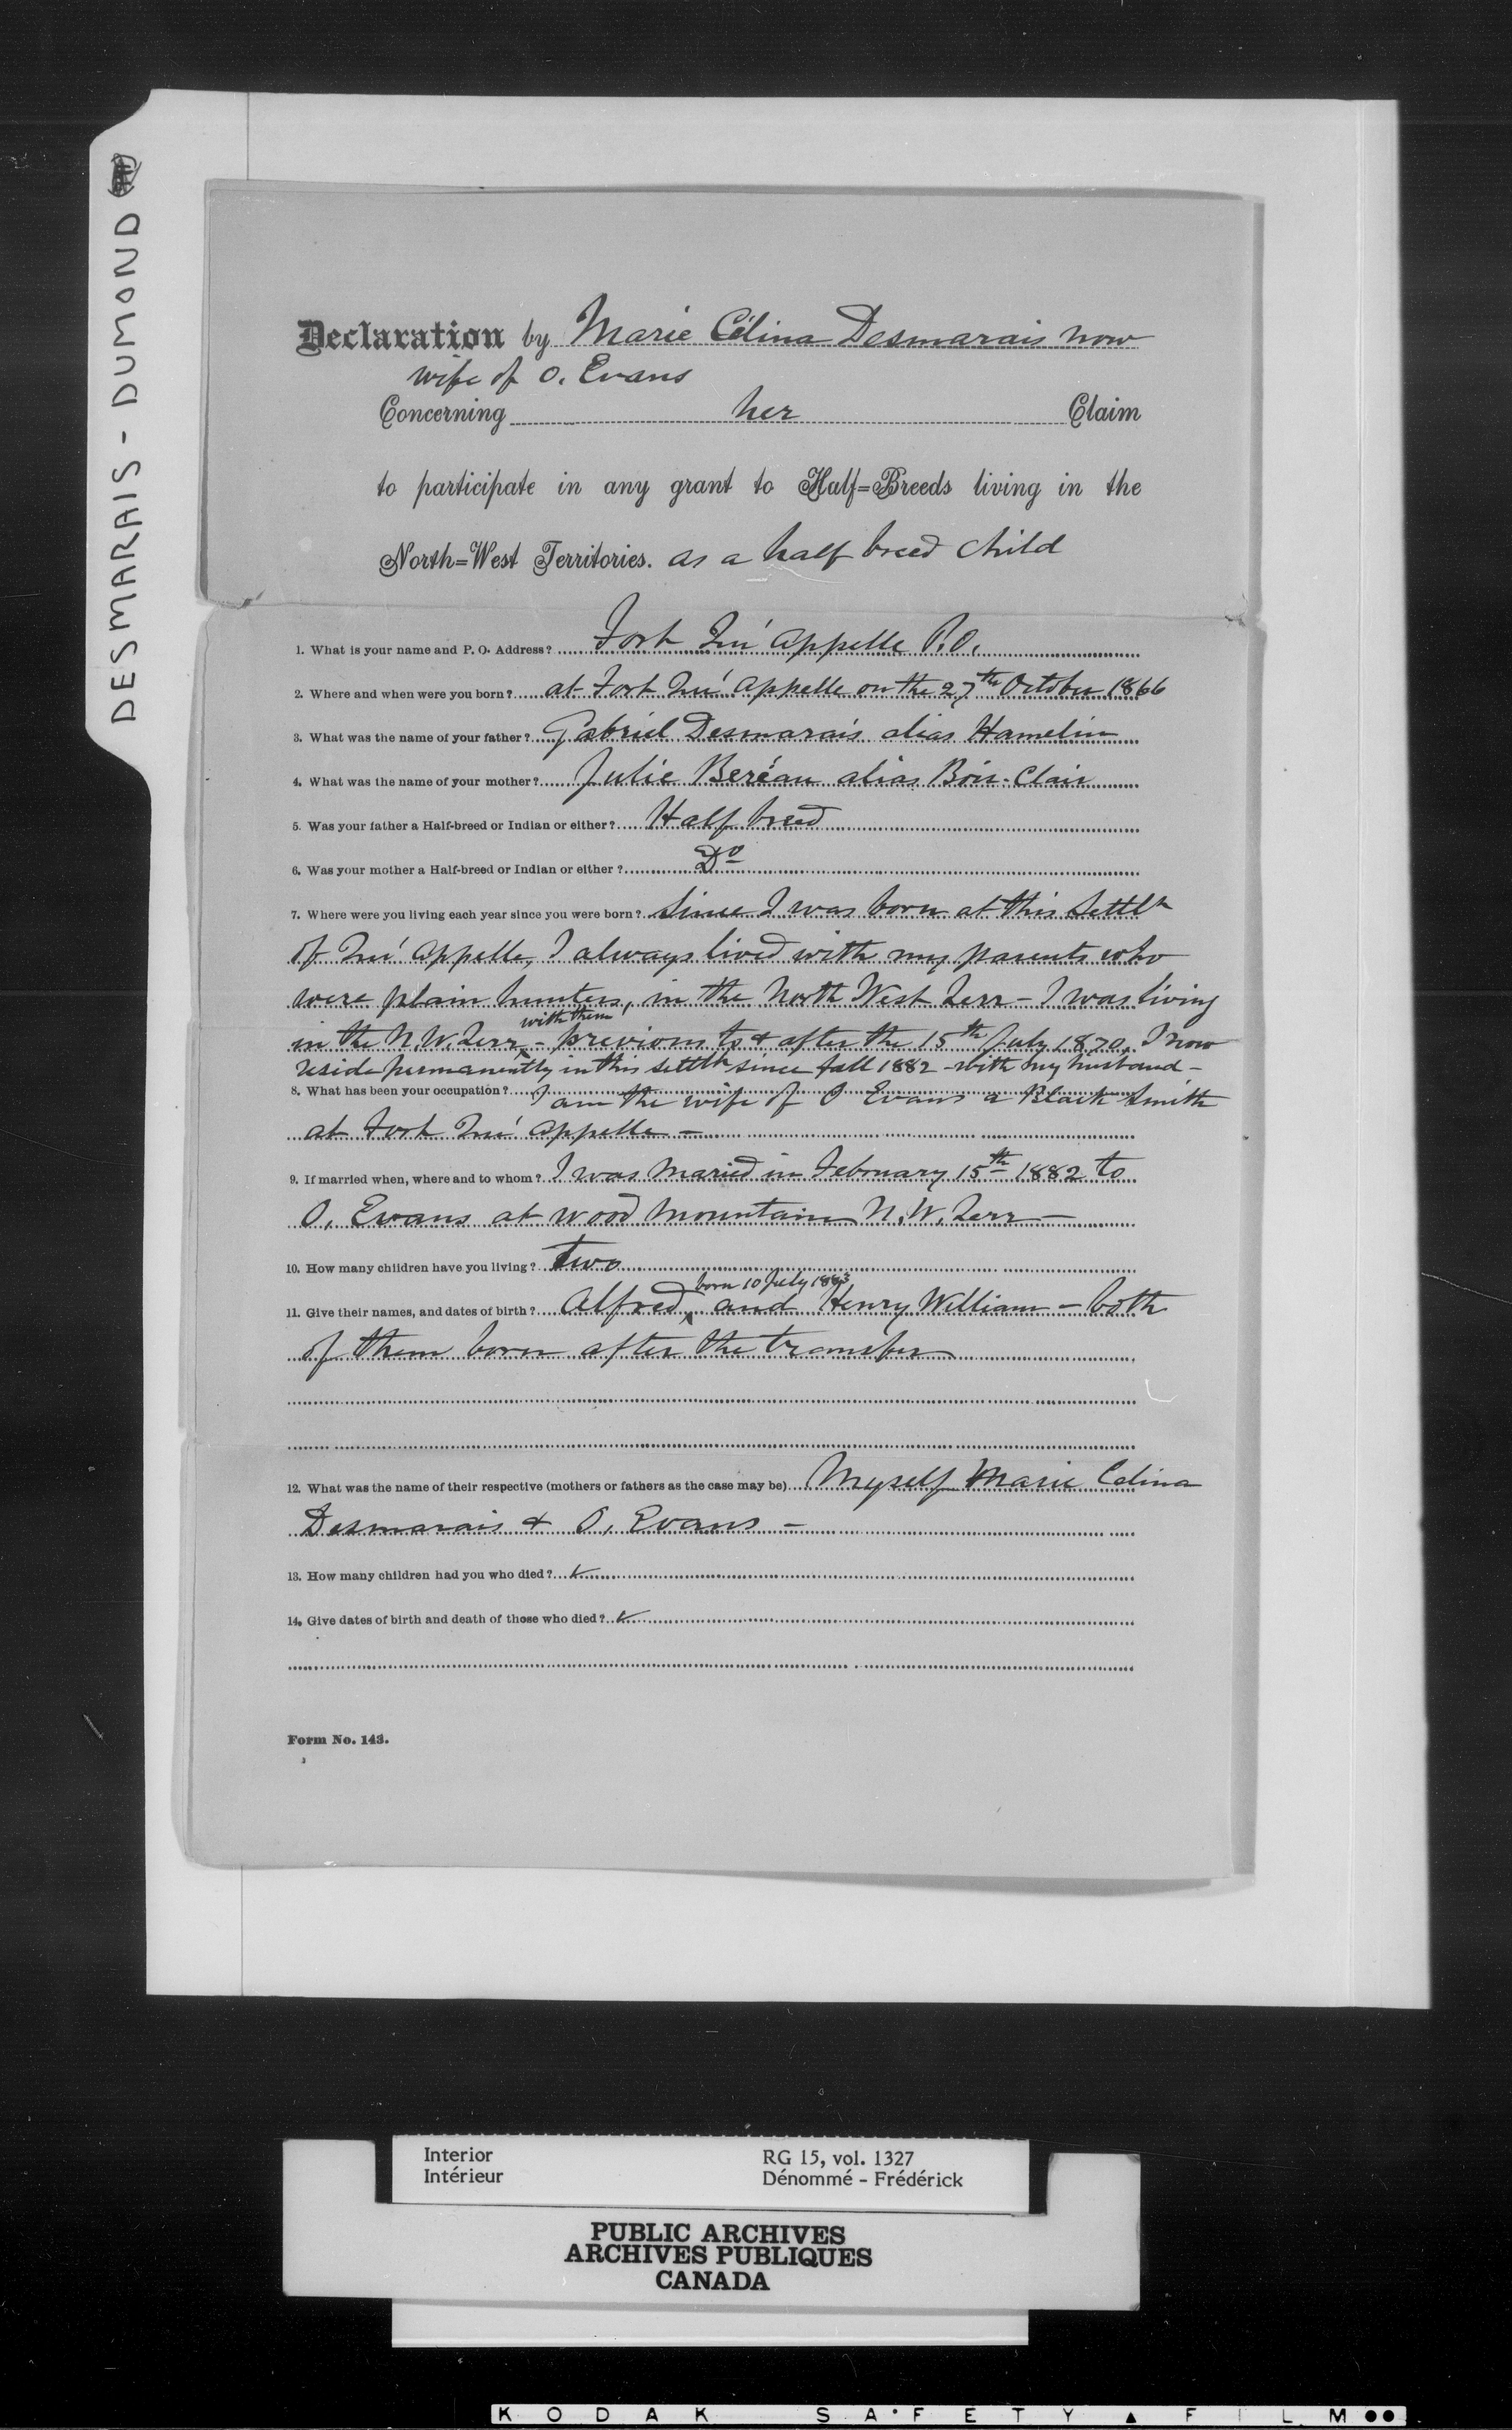 DESMARAIS - DUMOND
Declaration by Marie Célina Desmarais now
wife of O. Evans
Concerning her Claim
to participate in any grant to Half=Breeds living in the
North=West Territories. as a half breed child
1. What is your name and P. O. Address? Fort Qu'appelle P.O.
2. Where and when were you born? at Fort Qu'appelle on the 27th October 1866
3. What was the name of your father? Gabriel Desmarais alias Hamelin
4. What was the name of your mother? Julie Beréau alias Bois-Clair
5. Was your father a Half-breed or Indian or either? Half breed
6. Was your mother a Half-breed or Indian or either? Do
7. Where were you living each year since you were born? Since I was born at this Settlt
of Qu'appelle, I always lived with my parents who
were plain hunters, in the North West Terr - I was living
with them
in the N.W. Terr - previous to & after the 15th July 1870. I now
reside permanently in this settlt since fall 1882 - with my husband -
8. What has been your occupation? I am the wife of O Evans a Black Smith
at Fort Qu'appelle -
9. If married when, where and to whom? I was maried in February 15th 1882 to
O. Evans at Wood Mountain N.W. Terr -
10. How many children have you living? Two
born 10 July 1883
11. Give their names, and dates of birth? Alfred, and Henry William - both
of them born after the transfer
12. What was the name of their respective (mothers or fathers as the case may be) Myself Marie Celina
Desmarais & O. Evans -
13. How many children had you who died? ✓
14. Give dates of birth and death of those who died? ✓
Form No. 143.
Interior RG 15, vol. 1327
Intérieur Dénommé - Frédérick
PUBLIC ARCHIVES
ARCHIVES PUBLIQUES
CANADA
KODAK SAFETY ▲ FILM ●●